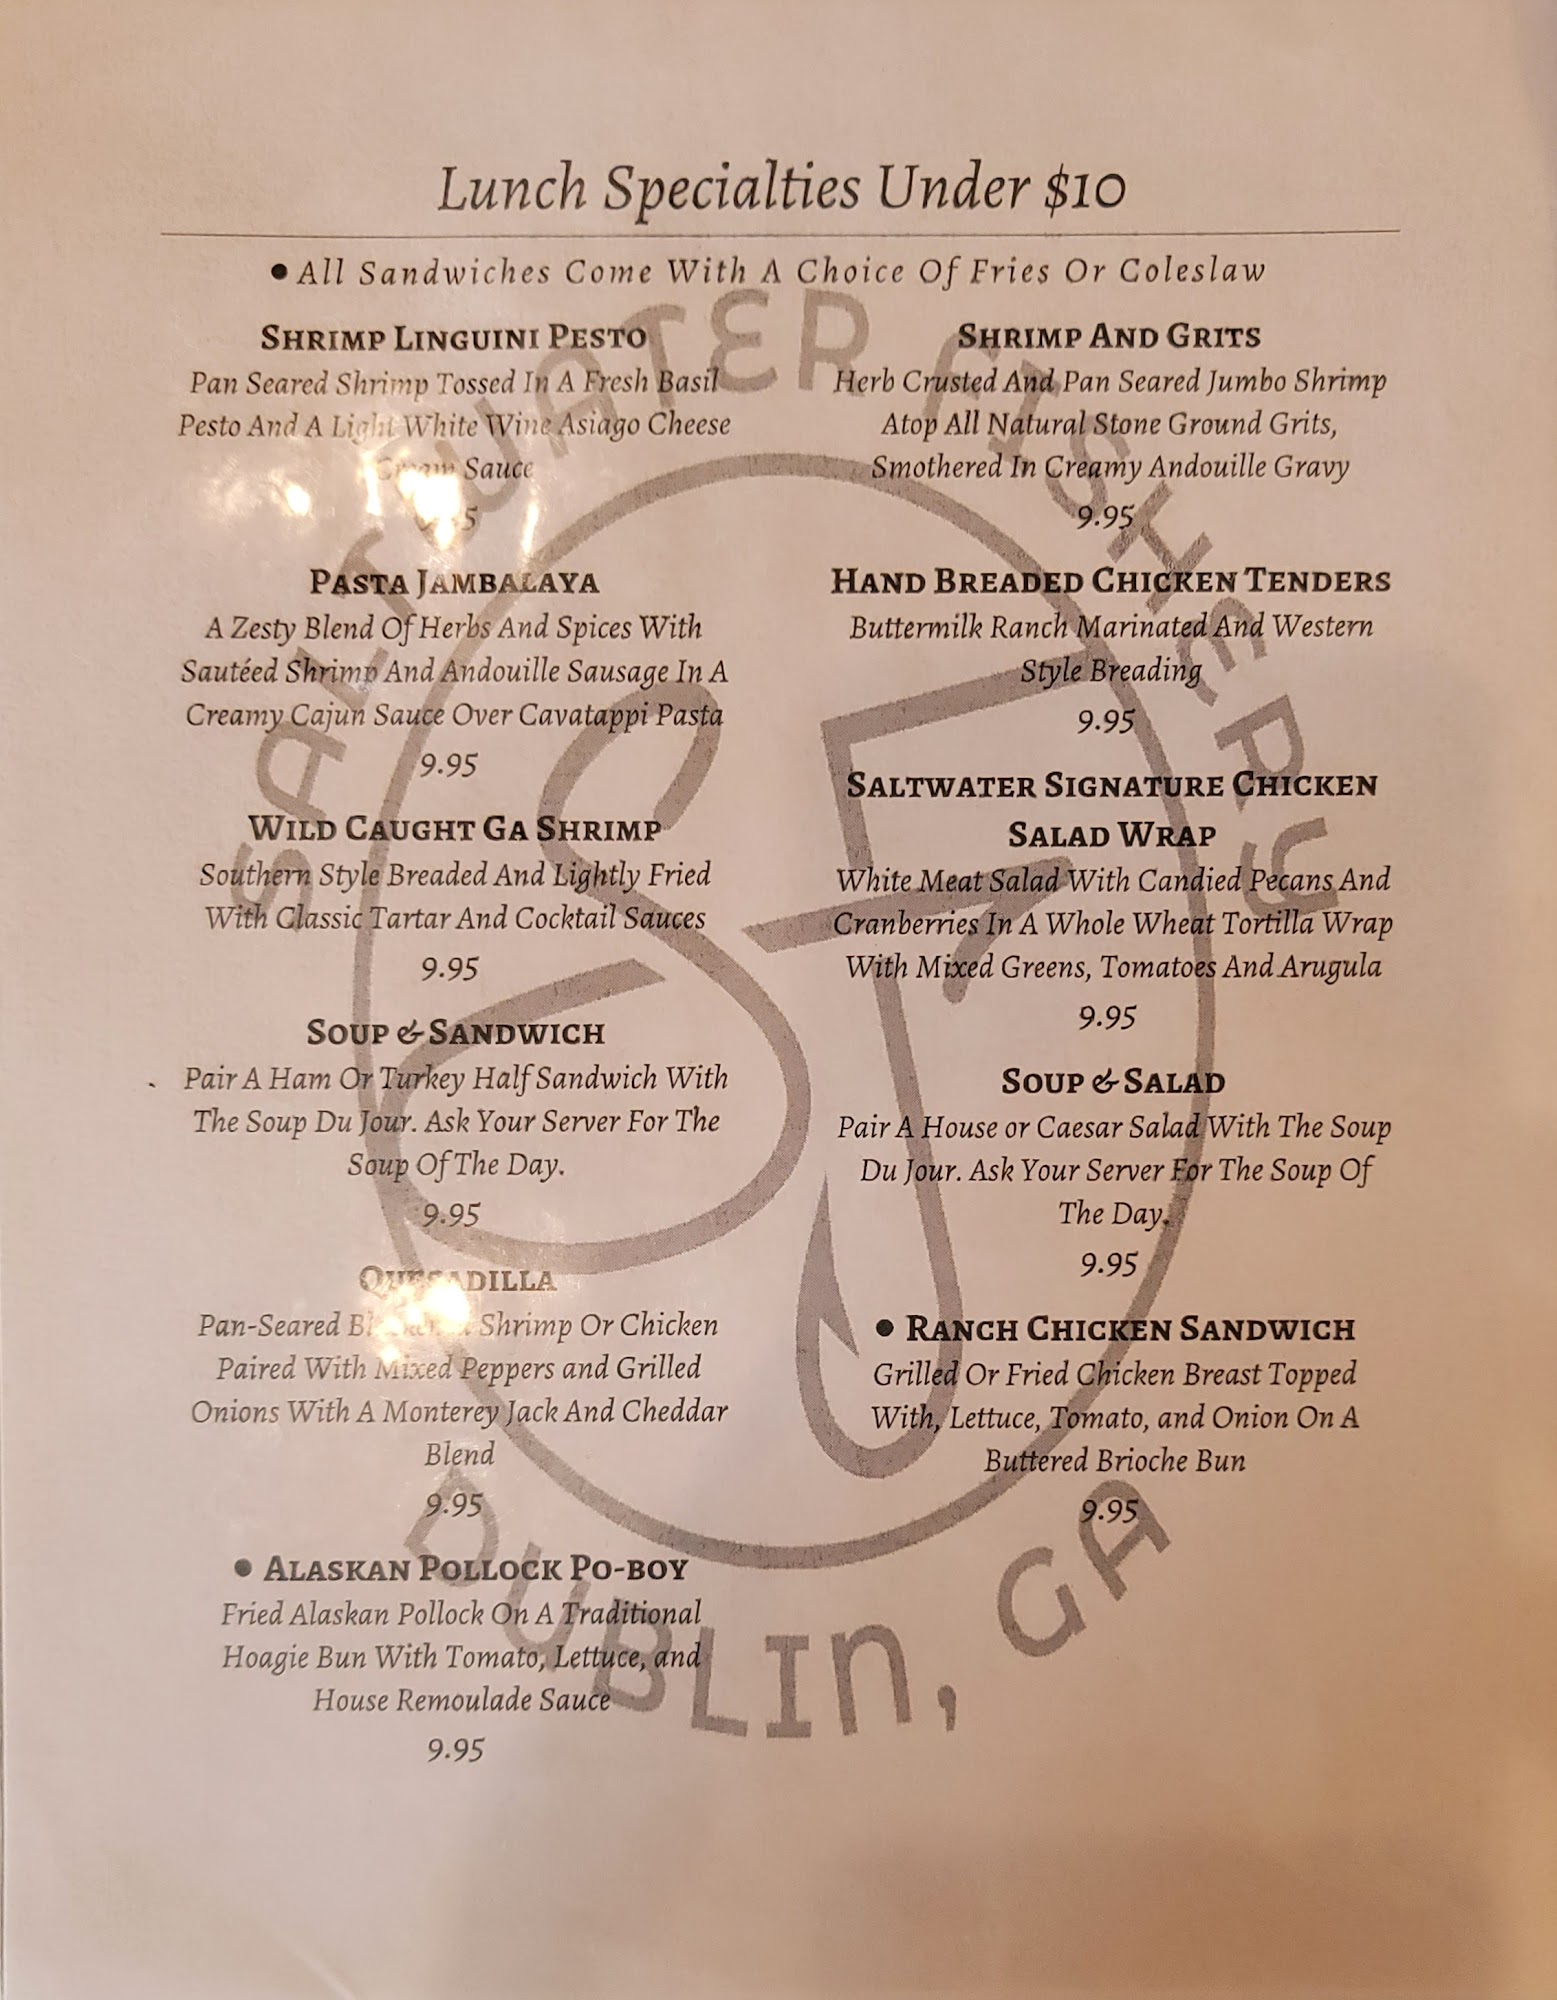 Lunch Specialties Under $10
• All Sandwiches Come With A Choice Of Fries Or Coleslaw
SHRIMP LINGUINI PESTO
Pan Seared Shrimp Tossed In A Fresh Basil
Pesto And A Light White Wine Asiago Cheese
Cream Sauce
PASTA JAMBALAYA
A Zesty Blend Of Herbs And Spices With
Sautéed Shrimp And Andouille Sausage In A
Creamy Cajun Sauce Over Cavatappi Pasta
9.95
WILD CAUGHT GA SHRIMP
Southern Style Breaded And Lightly Fried
With Classic Tartar And Cocktail Sauces
9.95
SOUP & SANDWICH
Pair A Ham Or Turkey Half Sandwich With
The Soup Du Jour. Ask Your Server For The
Soup Of The Day.
9.95
QUESADILLA
Pan-Seared Blackened Shrimp Or Chicken
Paired With Mixed Peppers and Grilled
Onions With A Monterey Jack And Cheddar
Blend
9.95
• ALASKAN POLLOCK PO-BOY
Fried Alaskan Pollock On A Traditional
Hoagie Bun With Tomato, Lettuce, and
House Remoulade Sauce
9.95
SHRIMP AND GRITS
Herb Crusted And Pan Seared Jumbo Shrimp
Atop All Natural Stone Ground Grits,
Smothered In Creamy Andouille Gravy
9.95
HAND BREADED CHICKEN TENDERS
Buttermilk Ranch Marinated And Western
Style Breading
9.95
SALTWATER SIGNATURE CHICKEN
SALAD WRAP
White Meat Salad With Candied Pecans And
Cranberries In A Whole Wheat Tortilla Wrap
With Mixed Greens, Tomatoes And Arugula
9.95
SOUP & SALAD
Pair A House or Caesar Salad With The Soup
Du Jour. Ask Your Server For The Soup Of
The Day.
9.95
• RANCH CHICKEN SANDWICH
Grilled Or Fried Chicken Breast Topped
With, Lettuce, Tomato, and Onion On A
Buttered Brioche Bun
9.95
SALTWATER FISHERY
DUBLIN, GA